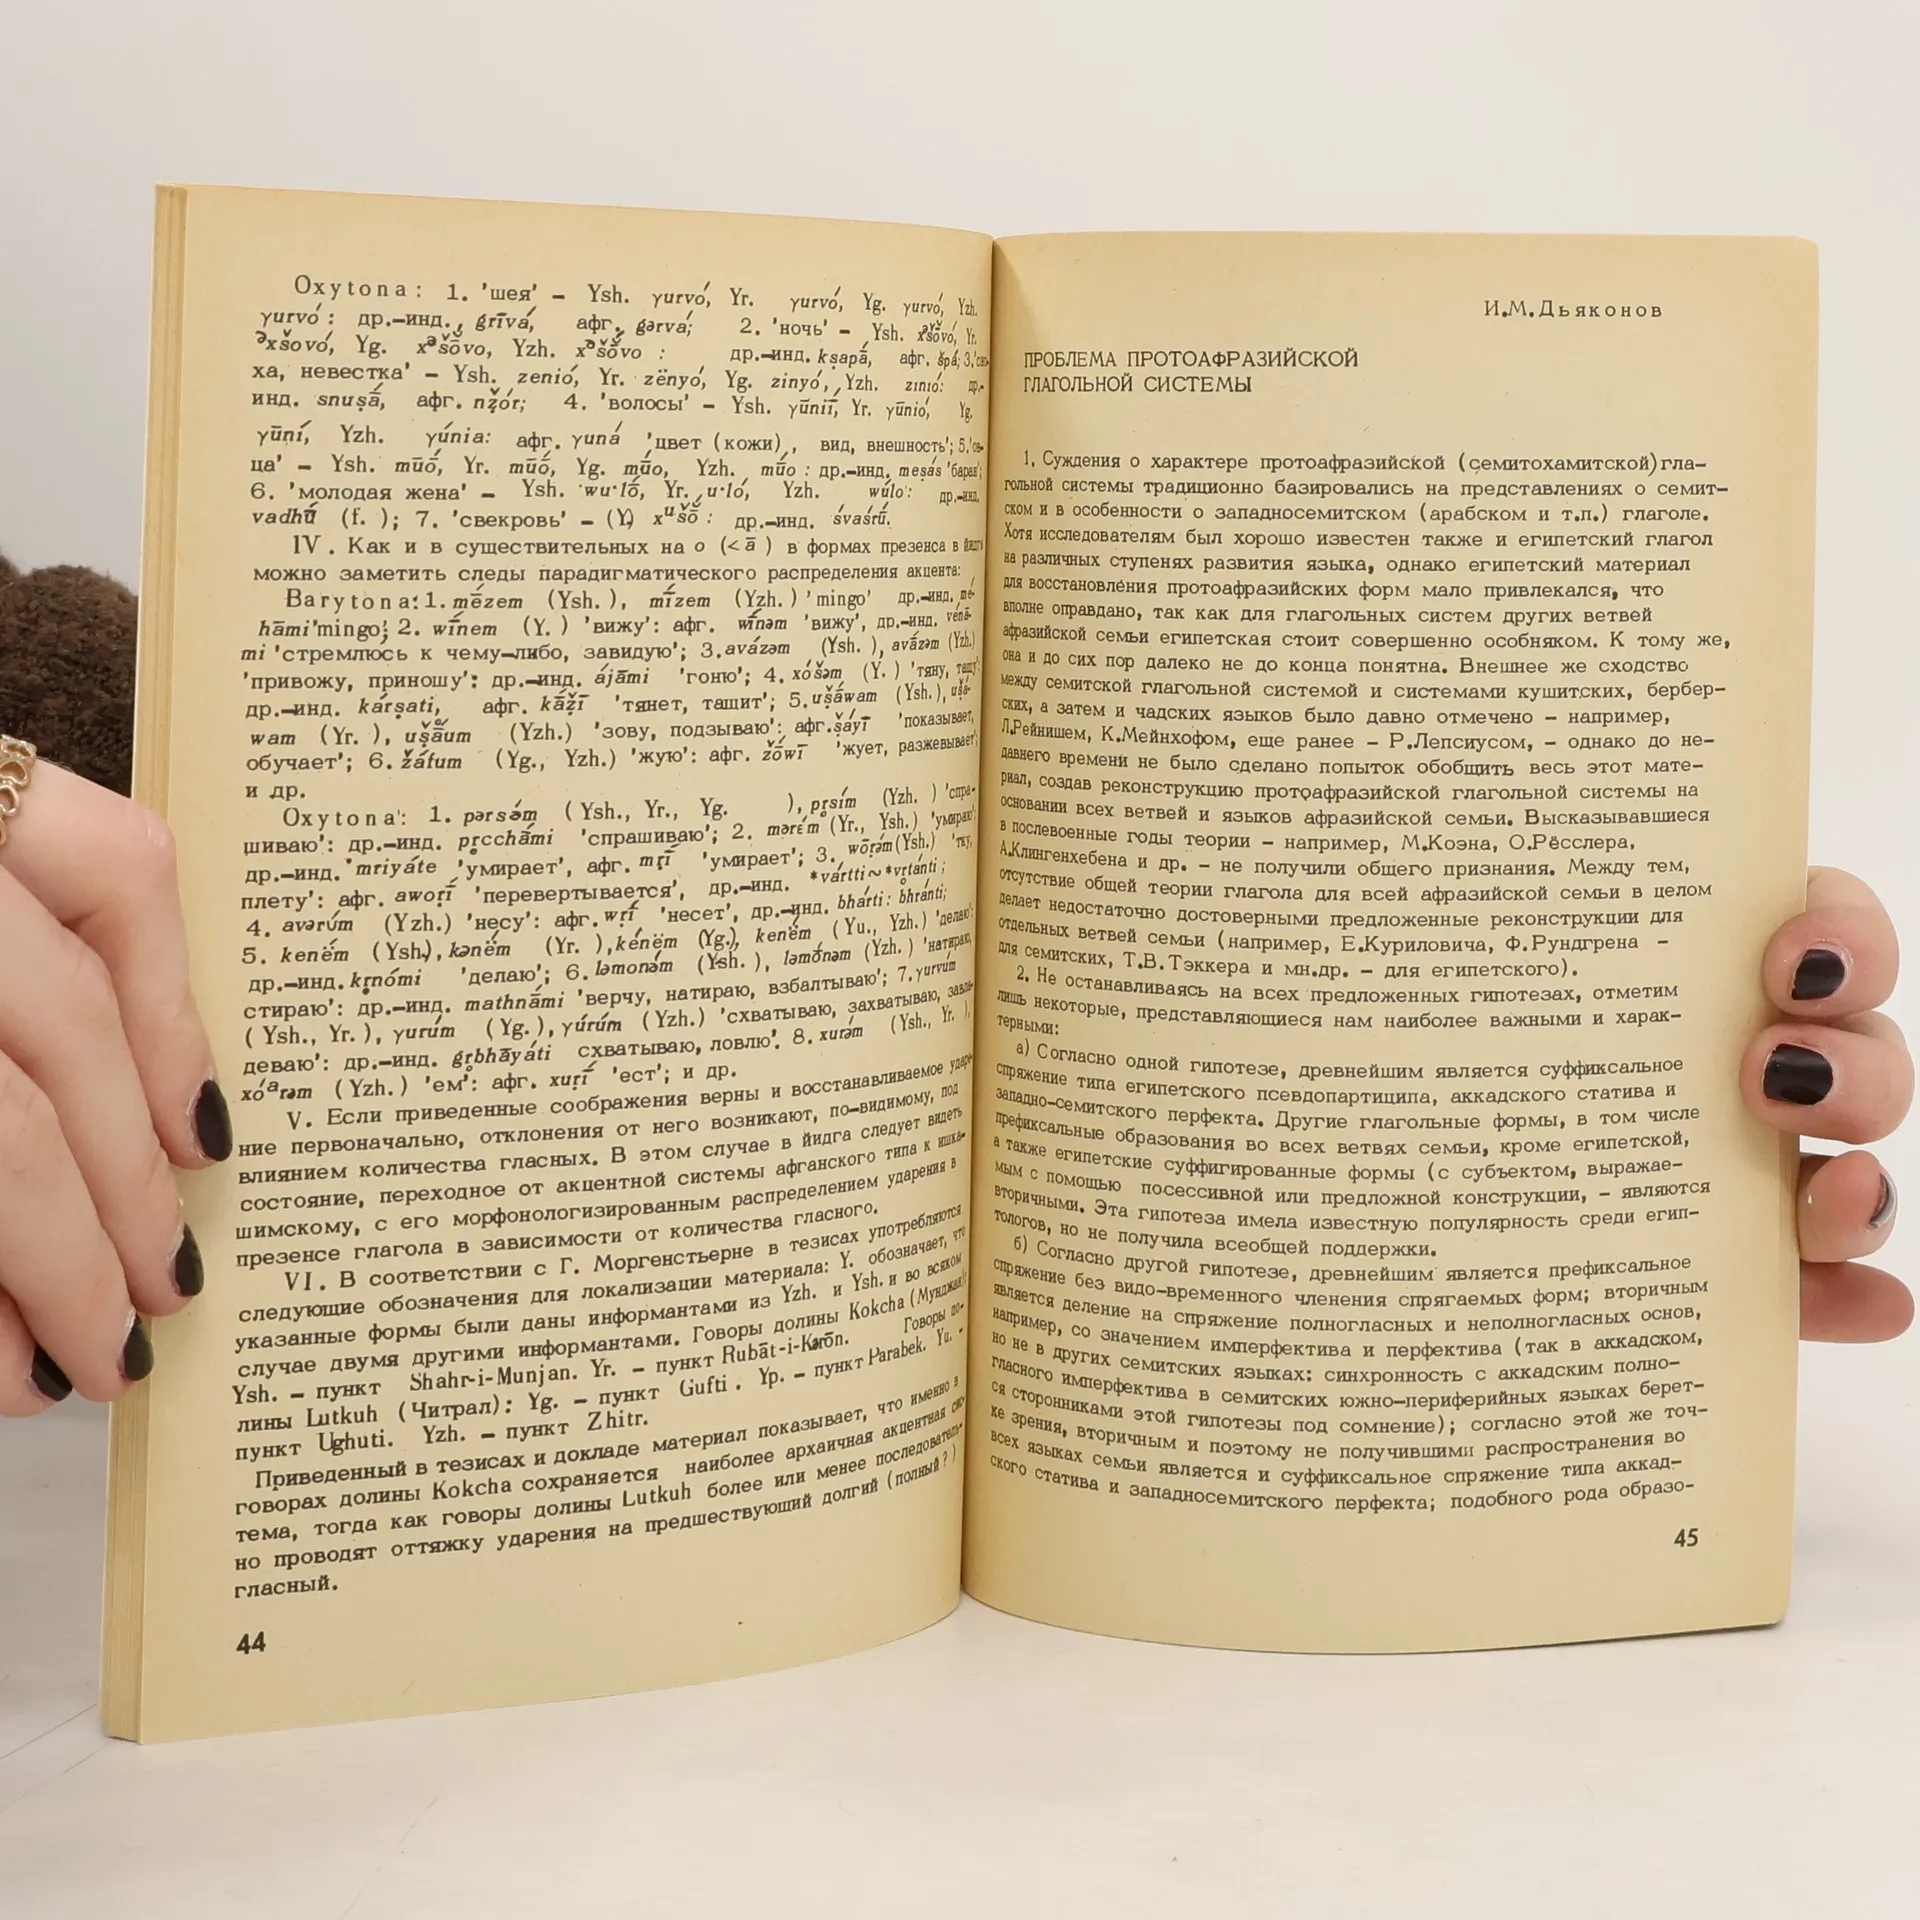 Oxytona: 1. 'шея' – Ysh. γurvó, Yr. γurvó, Yg. γurvó, Yzh.
γurvó: др.–инд., grīvá, афг. gərvá; 2. 'ночь' – Ysh. Yr.
əxšovó, Yg. xəšōvo, Yzh. xəšōvo : др.–инд. kṣapā́, афг. špá; 3.
ха, невестка' – Ysh. zenió, Yr. zënyó, Yg. zinyó, Yzh. zinió: др.–
инд. snuṣā́, афг. nẓ̌ór; 4. 'волосы' – Ysh. Yr. γūnió, Yg.
γūní, Yzh. γúnia: афг. γuná 'цвет (кожи), вид, внешность'; 5.'ов-
ца' – Ysh. mūó, Yr. mūó, Yg. mū́o, Yzh. mū́o : др.–инд. meṣás 'баран';
6. 'молодая жена' – Ysh. wu·ló, Yr. u·ló, Yzh. wúlo: др.–инд.
vadhū́ (f. ); 7. 'свекровь' – (Y.) xušṓ : др.–инд. śvaśrū́.
IV. Как и в существительных на o (<ā) в формах презенса в йидга
можно заметить следы парадигматического распределения акцента:
Barytona: 1. mḗzem (Ysh.), mī́zem (Yzh.) 'mingo' др.–инд. mé-
hāmi 'mingo'; 2. wī́nem (Y. ) 'вижу': афг. wī́nəm 'вижу', др.–инд. vénā-
mi 'стремлюсь к чему–либо, завидую'; 3. avázəm (Ysh. ), avā́zəm (Yzh.)
'привожу, приношу': др.–инд. ájāmi 'гоню'; 4. xóšəm (Y. ) 'тяну, тащу':
др.–инд. kárṣati, афг. kā́ẓ̌ī 'тянет, тащит'; 5. ušā́wam (Ysh.), ušā́-
wam (Yr. ), (Yzh.) 'зову, подзываю': афг. 'показывает,
обучает'; 6. žáfum (Yg., Yzh.) 'жую': афг. žṓwī 'жует, разжевывает';
и др.
Oxytona: 1. pərsə́m (Ysh., Yr., Yg. ), pṛsím (Yzh. ) 'спра-
шиваю': др.–инд. pṛcchā́mi 'спрашиваю'; 2. mərə́m (Yr., Ysh.) 'умираю':
др.–инд. mriyáte 'умирает', афг. mṛī́ 'умирает'; 3. wōrə́m (Ysh.) 'тку,
плету': афг. awoṛī́ 'перевертывается', др.–инд. *vártti~*vṛtánti;
4. avərúm (Yzh.) 'несу': афг. wṛī́ 'несет', др.–инд. bhárti: bhránti;
5. kenë́m (Ysh.), kənë́m (Yr. ), kénëm (Yg.), kenë́m (Yu., Yzh.) 'делаю':
др.–инд. kṛnómi 'делаю'; 6. ləmonə́m (Ysh. ), ləmṓnəm (Yzh. ) 'натираю,
стираю': др.–инд. mathnā́mi 'верчу, натираю, взбалтываю'; 7. γurvúm
(Ysh., Yr. ), γurúm (Yg. ), γúrúm (Yzh.) 'схватываю, захватываю, завла-
деваю': др.–инд. gṛbhāyáti схватываю, ловлю'. 8. xurə́m (Ysh., Yr. ),
xóarəm (Yzh. ) 'ем': афг. xurī́ 'ест'; и др.
V. Если приведенные соображения верны и восстанавливаемое ударе-
ние первоначально, отклонения от него возникают, по–видимому, под
влиянием количества гласных. В этом случае в йидга следует видеть
состояние, переходное от акцентной системы афганского типа к ишка-
шимскому, с его морфонологизированным распределением ударения в
презенсе глагола в зависимости от количества гласного.
VI. В соответствии с Г. Моргенстьерне в тезисах употребляются
следующие обозначения для локализации материала: Y. обозначает, что
указанные формы были даны информантами из Yzh. и Ysh. и во всяком
случае двумя другими информантами. Говоры долины Kokcha (Мунджан):
Ysh. – пункт Shahr-i-Munjan. Yr. – пункт Rubāt-i-Karōn. Говоры до-
лины Lutkuh (Читрал): Yg. – пункт Gufti. Yp. – пункт Parabek. Yu. –
пункт Ughuti. Yzh. – пункт Zhitr.
Приведенный в тезисах и докладе материал показывает, что именно в
говорах долины Kokcha сохраняется наиболее архаичная акцентная сис-
тема, тогда как говоры долины Lutkuh более или менее последователь-
но проводят оттяжку ударения на предшествующий долгий (полный?)
гласный.
44
И.М.Дьяконов
ПРОБЛЕМА ПРОТОАФРАЗИЙСКОЙ
ГЛАГОЛЬНОЙ СИСТЕМЫ
1. Суждения о характере протоафразийской (семитохамитской) гла-
гольной системы традиционно базировались на представлениях о семит-
ском и в особенности о западносемитском (арабском и т.п.) глаголе.
Хотя исследователям был хорошо известен также и египетский глагол
на различных ступенях развития языка, однако египетский материал
для восстановления протоафразийских форм мало привлекался, что
вполне оправдано, так как для глагольных систем других ветвей
афразийской семьи египетская стоит совершенно особняком. К тому же,
она и до сих пор далеко не до конца понятна. Внешнее же сходство
между семитской глагольной системой и системами кушитских, бербер-
ских, а затем и чадских языков было давно отмечено – например,
Л.Рейнишем, К.Мейнхофом, еще ранее – Р.Лепсиусом, – однако до не-
давнего времени не было сделано попыток обобщить весь этот мате-
риал, создав реконструкцию протоафразийской глагольной системы на
основании всех ветвей и языков афразийской семьи. Высказывавшиеся
в послевоенные годы теории – например, М.Коэна, О.Рёсслера,
А.Клингенхебена и др. – не получили общего признания. Между тем,
отсутствие общей теории глагола для всей афразийской семьи в целом
делает недостаточно достоверными предложенные реконструкции для
отдельных ветвей семьи (например, Е.Куриловича, Ф.Рундгрена –
для семитских, Т.В.Тэккера и мн.др. – для египетского).
2. Не останавливаясь на всех предложенных гипотезах, отметим
лишь некоторые, представляющиеся нам наиболее важными и харак-
терными:
а) Согласно одной гипотезе, древнейшим является суффиксальное
спряжение типа египетского псевдопартиципа, аккадского статива и
западно–семитского перфекта. Другие глагольные формы, в том числе
префиксальные образования во всех ветвях семьи, кроме египетской,
а также египетские суффигированные формы (с субъектом, выражае-
мым с помощью посессивной или предложной конструкции, – являются
вторичными. Эта гипотеза имела известную популярность среди егип-
тологов, но не получила всеобщей поддержки.
б) Согласно другой гипотезе, древнейшим является префиксальное
спряжение без видо–временного членения спрягаемых форм; вторичным
является деление на спряжение полногласных и неполногласных основ,
например, со значением имперфектива и перфектива (так в аккадском,
но не в других семитских языках: синхронность с аккадским полно-
гласного имперфектива в семитских южно–периферийных языках берет-
ся сторонниками этой гипотезы под сомнение); согласно этой же точ-
ке зрения, вторичным и поэтому не получившими распространения во
всех языках семьи является и суффиксальное спряжение типа аккад-
ского статива и западносемитского перфекта; подобного рода образо-
45